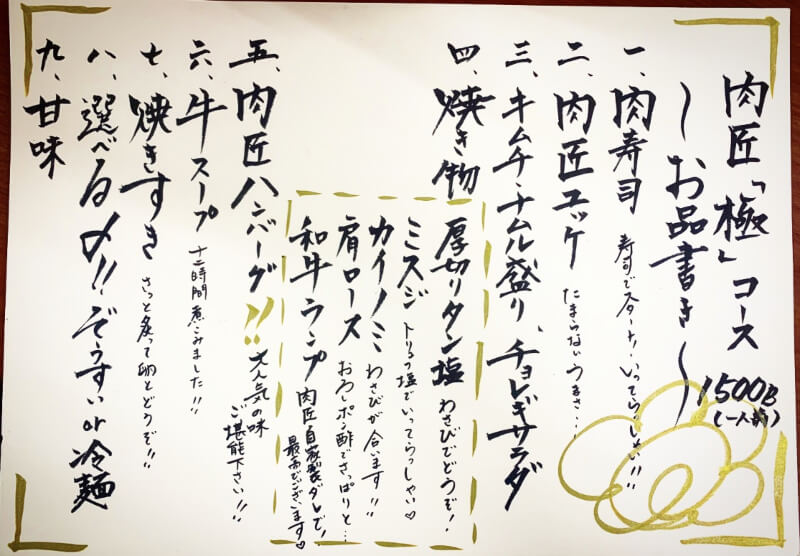 肉匠「極」コース
1500B
(一人前)
〜お品書き〜
一、肉寿司 寿司でスタート！いってらっしゃい!!!
二、肉匠ユッケ たまらないうまさ…
三、キムチ・ナムル盛り、チョレギサラダ
四、焼き物
厚切りタン塩 わさびでどうぞ！
ミスジ トリュフ塩でいってらっしゃい♡
カイノミ わさびが合います!!
肩ロース おろしポン酢でさっぱりと…
和牛ランプ 肉匠自家製ダレで！
最高でございます♡
五、肉匠ハンバーグ!! 大人気の味
ご堪能下さい!!
六、牛スープ 十二時間煮こみました!!
七、焼きすき さっと炙って卵とどうぞ!!
八、選べる〆!! ぞうすい or 冷麺
九、甘味